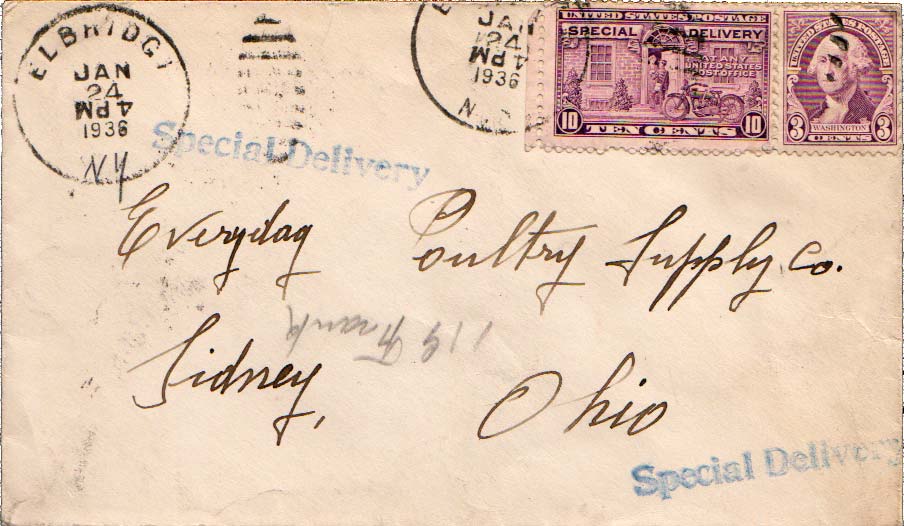 ELBRIDGE
JAN
24
4 PM
1936
N.Y.
JAN
24
4 PM
1936
N.Y.
UNITED STATES POSTAGE
SPECIAL DELIVERY
AT ANY
UNITED STATES
POST OFFICE
10 TEN CENTS 10
UNITED STATES POSTAGE
WASHINGTON
3 CENTS 3
Special Delivery
Everyday Poultry Supply Co.
119 Frank
Sidney, Ohio
Special Delivery